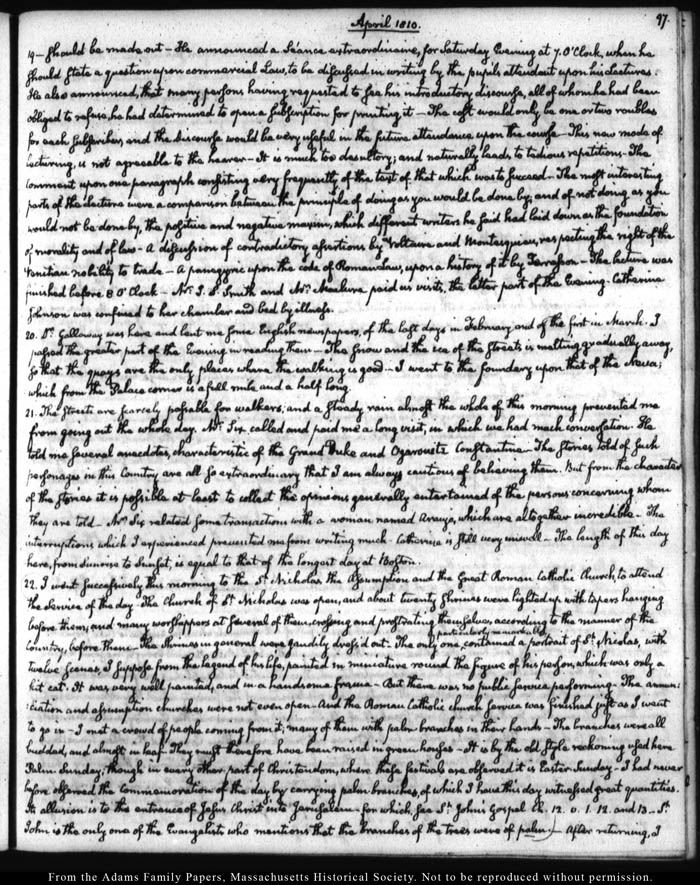 April 1810.
97.
19 — should be made out — He announced a Séance extraordinaire, for Saturday Evening at 7. O'Clock, when he
should state a question upon commercial Law, to be discussed in writing by the pupils attendant upon his lectures.
He also announced, that many persons having requested to see his introductory discourse, all of whom he had been
obliged to refuse, he had determined to open a subscription for printing it — The cost would only be one or two roubles
for each subscriber, and the discourse would be very useful in the future attendance upon the course — This new mode of
lecturing, is not agreeable to the hearer — It is much too desultory; and naturally leads to tedious repetitions — The
comment upon one paragraph consisting very frequently of the text of that which was to succeed — The most interesting
parts of the lecture were a comparison between the principle of doing as you would be done by, and of not doing as you
would not be done by, the positive and negative maxim, which different writers he said had laid down as the foundation
of morality and of law — A discussion of contradictory assertions by Voltaire and Montesquieu, respecting the right of the
Venitian nobility to trade — A panegyric upon the code of Roman Laws, upon a history of it by Terrasson — The lecture was
finished before 8 O'Clock — Mr. J. S. Smith and Mrs. Maclure paid us visits, the latter part of the Evening. Catherine
Johnson was confined to her chamber and bed by illness.
20. Dr. Galloway was here and lent me some English newspapers, of the last days in February and of the first in March. I
passed the greater part of the Evening in reading them — The snow and the ice of the streets is melting gradually away,
so that the quays are the only places where the walking is good — I went to the foundery upon that of the Neva;
which from the Palace corner is a full mile and a half long.
21. The streets are scarcely passable for walkers, and a steady rain almost the whole of this morning prevented me
from going out the whole day. Mr. Six called and paid me a long visit, in which we had much conversation. He
told me several anecdotes, characteristic of the Grand Duke and Czarowitz Constantine — The stories told of such
personages in this Country are all so extraordinary that I am always cautious of believing them. But from the character
of the stories it is possible at least to collect the opinions generally entertained of the persons concerning whom
they are told — Mr. Six related some transactions with a woman named Araujo, which are altogether incredible — The
interruptions which I experienced prevented me from writing much — Catherine is still very unwell — The length of this day
here, from sunrise to sunset, is equal to that of the longest day at Boston.
22. I went successively this morning to the St. Nicholas, the Assumption and the Great Roman Catholic Church, to attend
the service of the day — The Church of St. Nicholas was open, and about twenty shrines were lighted up with tapers hanging
before them, and many worshippers at several of them, crossing and prostrating themselves, according to the manner of the
Country, before them — The shrines in general were gaudily dress'd out — The only one, particularly remarkable, contained a portrait of St. Nicolas, with
twelve scenes, I suppose from the legend of his life, painted in miniature round the figure of his person, which was only a
kit cat. It was very well painted, and in a handsome frame — But there was no public service performing — The annun-
:ciation and assumption churches were not even open — And the Roman Catholic church service was finished just as I went
to go in — I met a crowd of people coming from it, many of them with palm branches in their hands — The branches were all
budded, and almost in leaf — They must therefore have been raised in green houses — It is by the old style reckoning used here
Palm Sunday; though in every other part of Christendom, where these festivals are observed it is Easter Sunday — I had never
before observed the commemoration of the day by carrying palm-branches, of which I have this day witnessed great quantities.
Its allusion is to the entrance of Jesus Christ into Jerusalem — for which, see St. John's Gospel Ch. 12. v. 1. 12. and 13 — St.
John is the only one of the Evangelists who mentions that the branches of the trees were of palm) — After returning, I
From the Adams Family Papers, Massachusetts Historical Society. Not to be reproduced without permission.